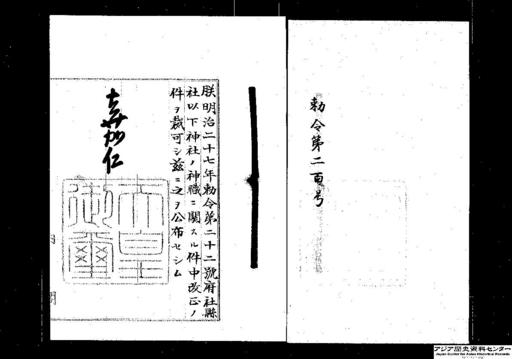 勅令第二百号
朕明治二十七年勅令第二十二號府社縣
社以下神社ノ神職ニ關スル件中改正ノ
件ヲ裁可シ茲ニ之ヲ公布セシム
嘉仁
天皇
御璽
アジア歴史資料センター
Japan Center for Asian Historical Records